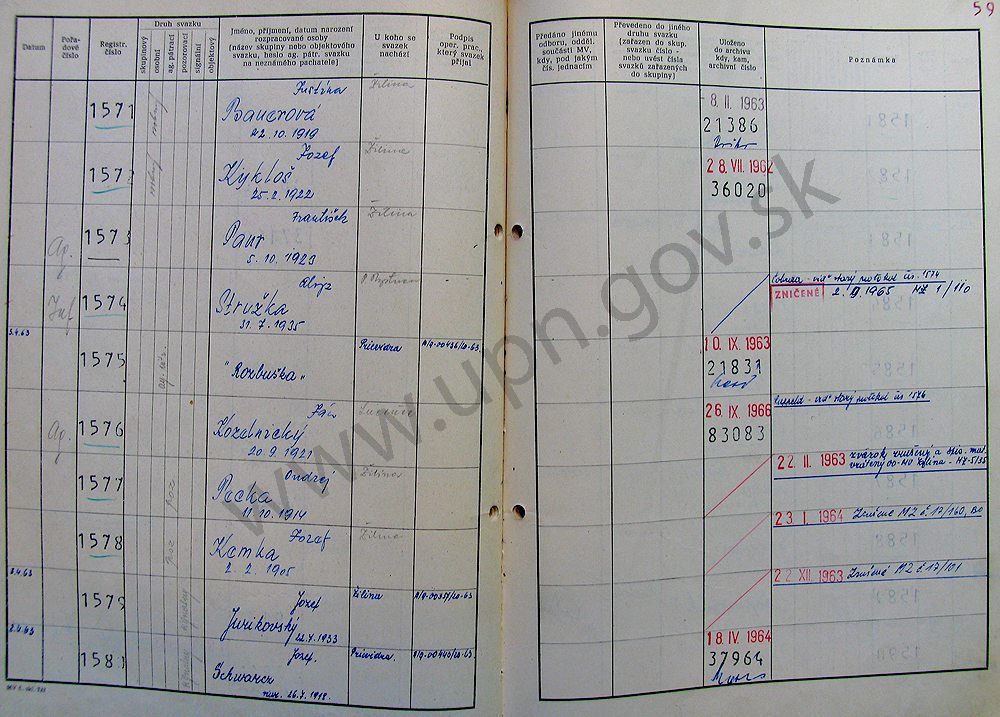 59
Datum
Pořa-
dové
číslo
Registr.
číslo
Druh svazku
skupinový
osobní
ag. pátrací
pozorovací
signální
objektový
Jméno, příjmení, datum narození
rozpracované osoby
(název skupiny nebo objektového
svazku, heslo ag. pátr. svazku
na neznámého pachatele)
U koho se
svazek
nachází
Podpis
oper. prac.,
který svazek
přijal
Předáno jinému
odboru, odděl.
součásti MV,
kdy, pod jakým
čís. jednacím
Převedeno do jiného
druhu svazku
(zařazen do skup.
svazku číslo -
nebo uvést čísla
svazků zařazených
do skupiny)
Uloženo
do archivu
kdy, kam,
archivní číslo
Poznámka
1571
Justína
Bauerová
10. 1919
Žilina
8. II. 1963
21386
1572
Jozef
Kykloš
25. 2. 1922
Žilina
28. VII. 1962
36020
Ag.
1573
František
Paur
5. 10. 1923
Žilina
Inf
1574
Alojz
Stružka
31. 7. 1935
starý protokol čís. 1574
ZNIČENÉ 2. 9. 1965 1/110
3.4.63
1575
"Rozbuška"
Prievidza
10. IX. 1963
21831
Ag.
1576
Ján
Kozelnický
20. 9. 1921
Lučenec
26. IX. 1966
83083
starý protokol čís. 1576
1577
poz
Ondrej
Pecka
11. 10. 1914
Žilina
22. II. 1963 zväzok zrušený a
1578
poz
Jozef
Kamka
2. 2. 1905
Žilina
23. I. 1964 Zrušené MZ č. 17/160,
3.4.63
1579
Jozef
Jurikovský
22.7.1933
Žilina
22 XII. 1963 Zrušené MZ č. 17/101
2.4.63
1580
Jozef
Schwarcz
nar. 26.7.1918
Prievidza
18. IV. 1964
37964
www.upn.gov.sk